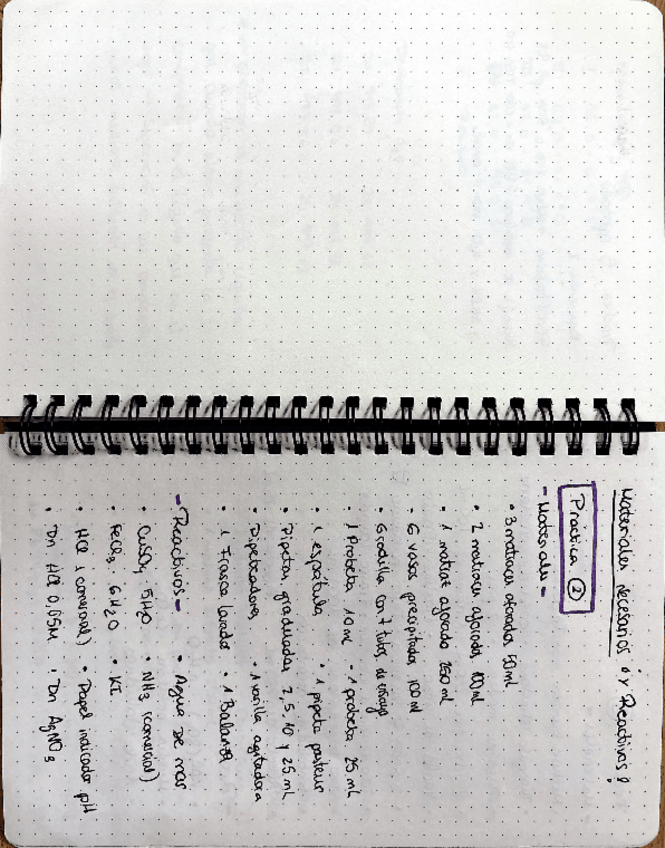 Materiales necesarios y Reactivos
Práctica ②
- Materiales -
• 3 matraces aforados 50 ml
• 2 matraces aforados 100 ml
• 1 matraz aforado 250 ml
• 6 vasos precipitados 100 ml
• Gradilla con 7 tubos de ensayo
• 1 Probeta 10 ml - 1 probeta 25 ml
• 1 espátula • 1 pipeta pasteur
• Pipetas graduadas 2, 5, 10 y 25 ml
• Pipeteadores • 1 varilla agitadora
• 1 Frasco lavador • 1 Balanza
- Reactivos - • Agua de mar
• CuSO4 5H2O • NH3 (comercial)
• FeCl3 6H2O • KI
• HCl comercial) • Papel indicador pH
• Dn HCl 0,05M • Dn AgNO3